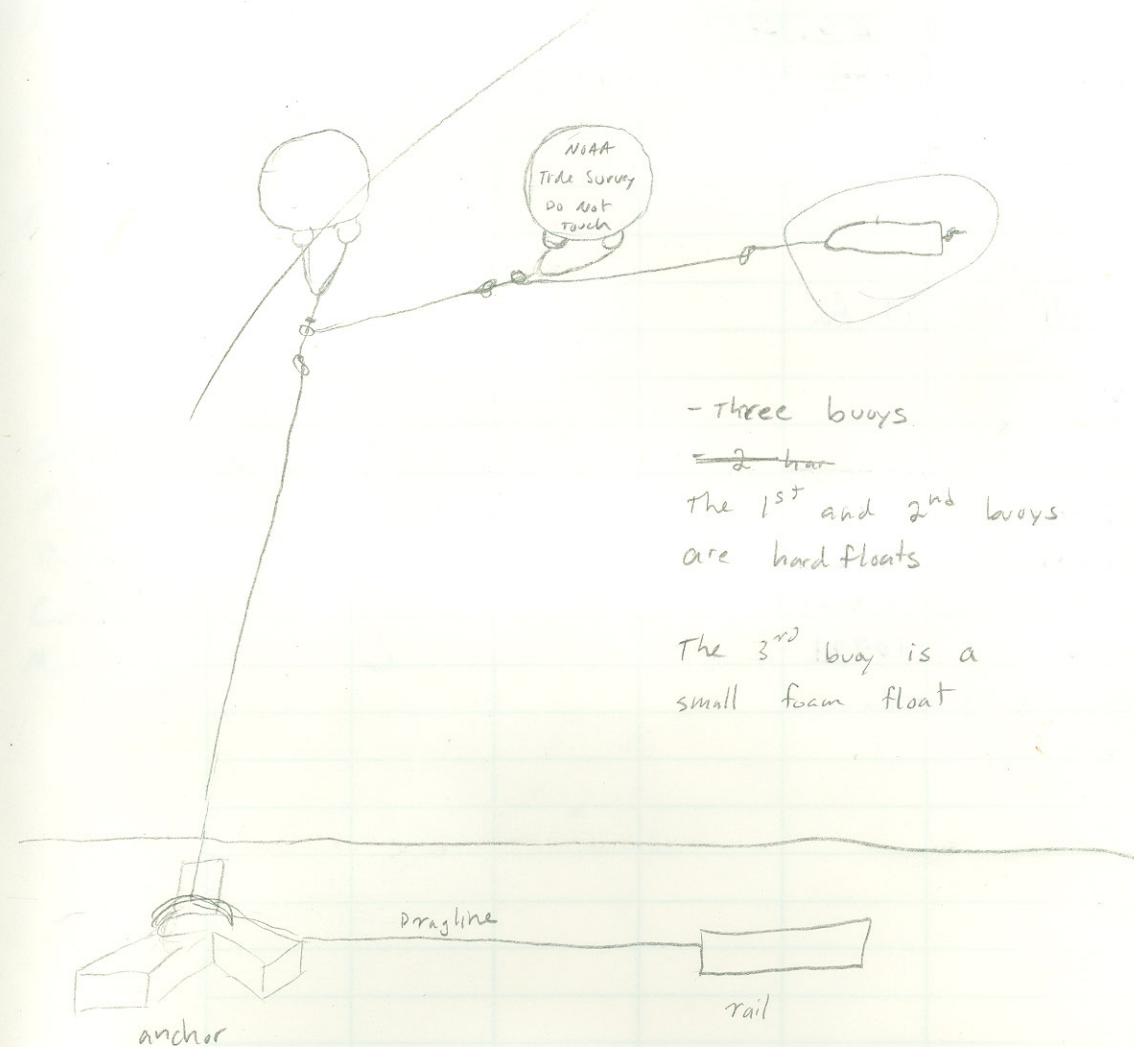 NOAA
Tide Survey
Do Not
Touch
- Three buoys
- 2 har
The 1st and 2nd buoys
are hard floats
The 3rd buoy is a
small foam float
Dragline
rail
anchor